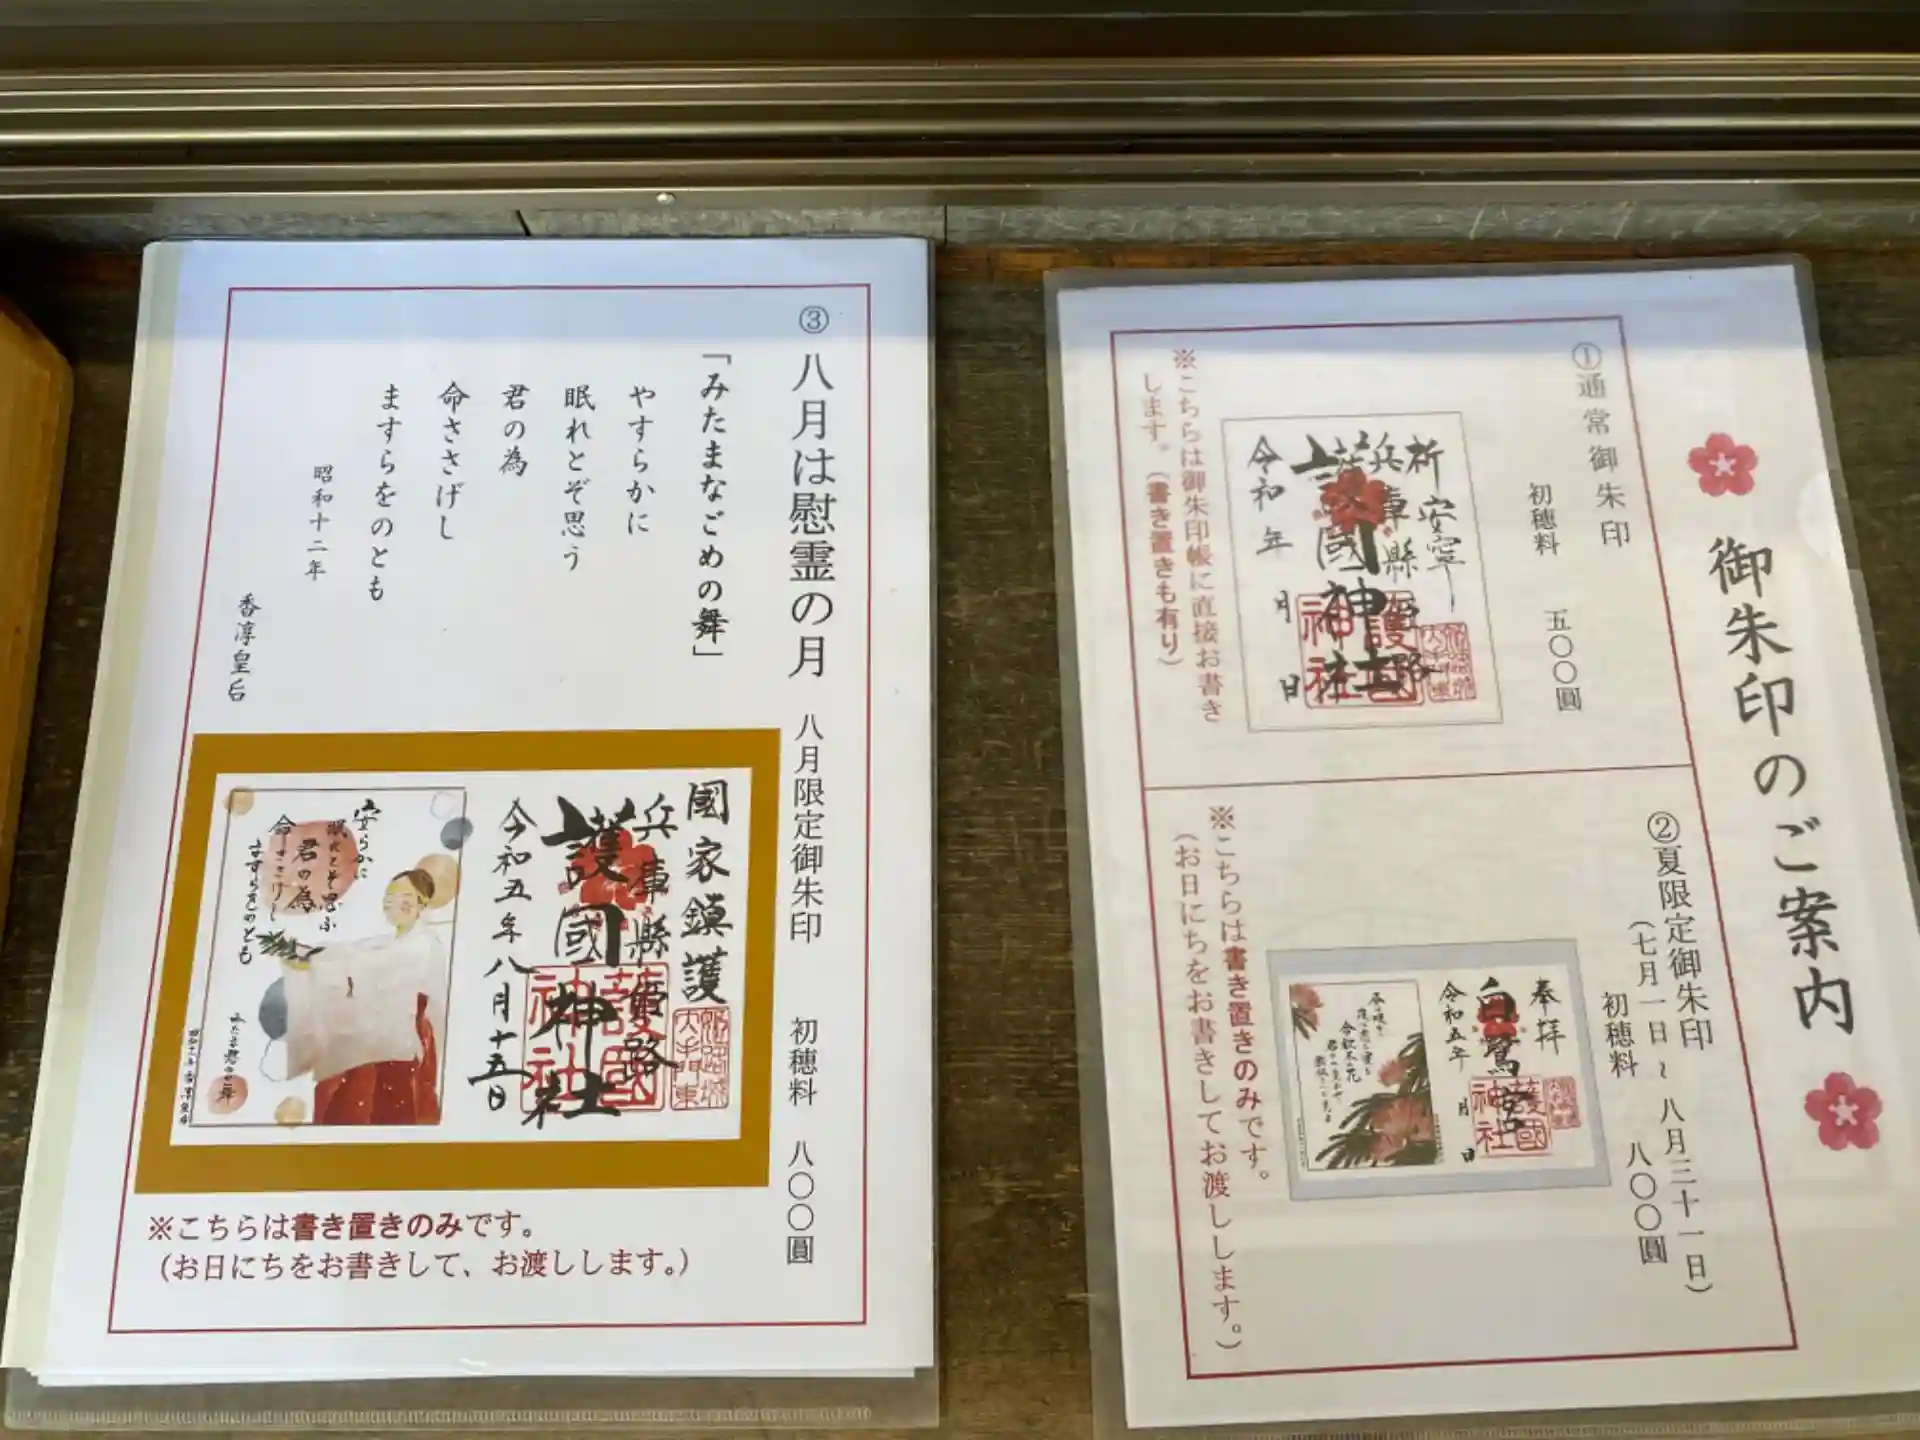 御朱印のご案内
①通常御朱印
初穂料 五〇〇圓
祈安寧
兵庫縣姫路
護國神社
令和 年 月 日
護國神社
※こちらは御朱印帳に直接お書き
します。（書き置きも有り）
②夏限定御朱印
（七月一日～八月三十一日）
初穂料 八〇〇圓
奉拝
白鷺宮
令和五年 月 日
護國神社
※こちらは書き置きのみです。
（お日にちをお書きしてお渡しします。）
③八月は慰霊の月 八月限定御朱印 初穂料 八〇〇圓
「みたまなごめの舞」
やすらかに
眠れとぞ思う
君の為
命ささげし
ますらをのとも
昭和十二年
香淳皇后
國家鎮護
兵庫縣姫路
護國神社
令和五年八月十五日
護國神社
安らかに
眠れとぞ思ふ
君の為
命ささげし
ますらをのとも
※こちらは書き置きのみです。
（お日にちをお書きして、お渡しします。）